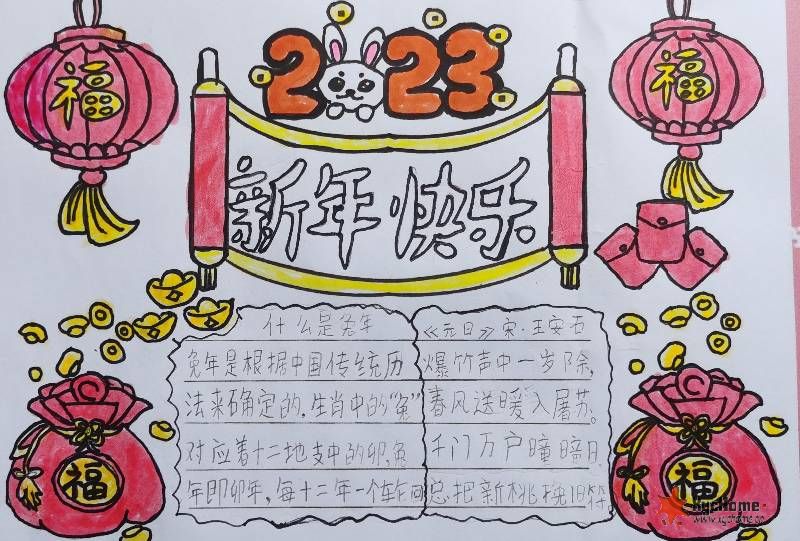 2023
福
福
新年快乐
什么是兔年
兔年是根据中国传统历
法来确定的,生肖中的“兔”
对应着十二地支中的卯,兔
年即卯年,每十二年一个轮回
《元日》宋·王安石
爆竹声中一岁除,
春风送暖入屠苏。
千门万户瞳瞳日
总把新桃换旧符。
福
福
XycHome
www.xychome.cn